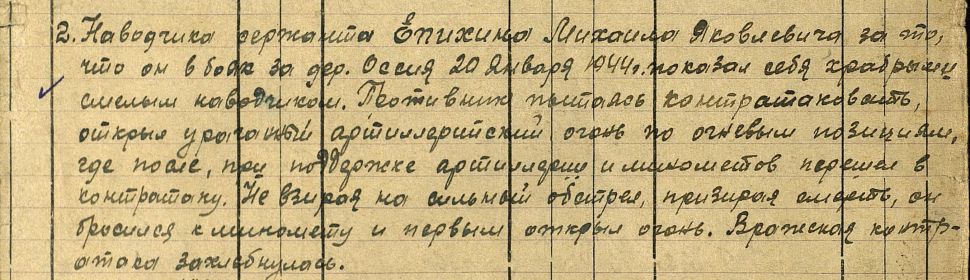 2. Наводчика сержанта Епихина Михаила Яковлевича за то,
что он в боях за дер. Оссия 20 января 1944г. показал себя храбрым и
смелым наводчиком. Противник пытаясь контратаковать,
открыл ураганый артиллерийский огонь по огневым позициям,
где после, при поддержке артиллерии и минометов перешел в
контратаку. Не взирая на сильный обстрел, призирая смерть, он
бросился к миномету и первым открыл огонь. Вражеская контр-
атака захлебнулась.